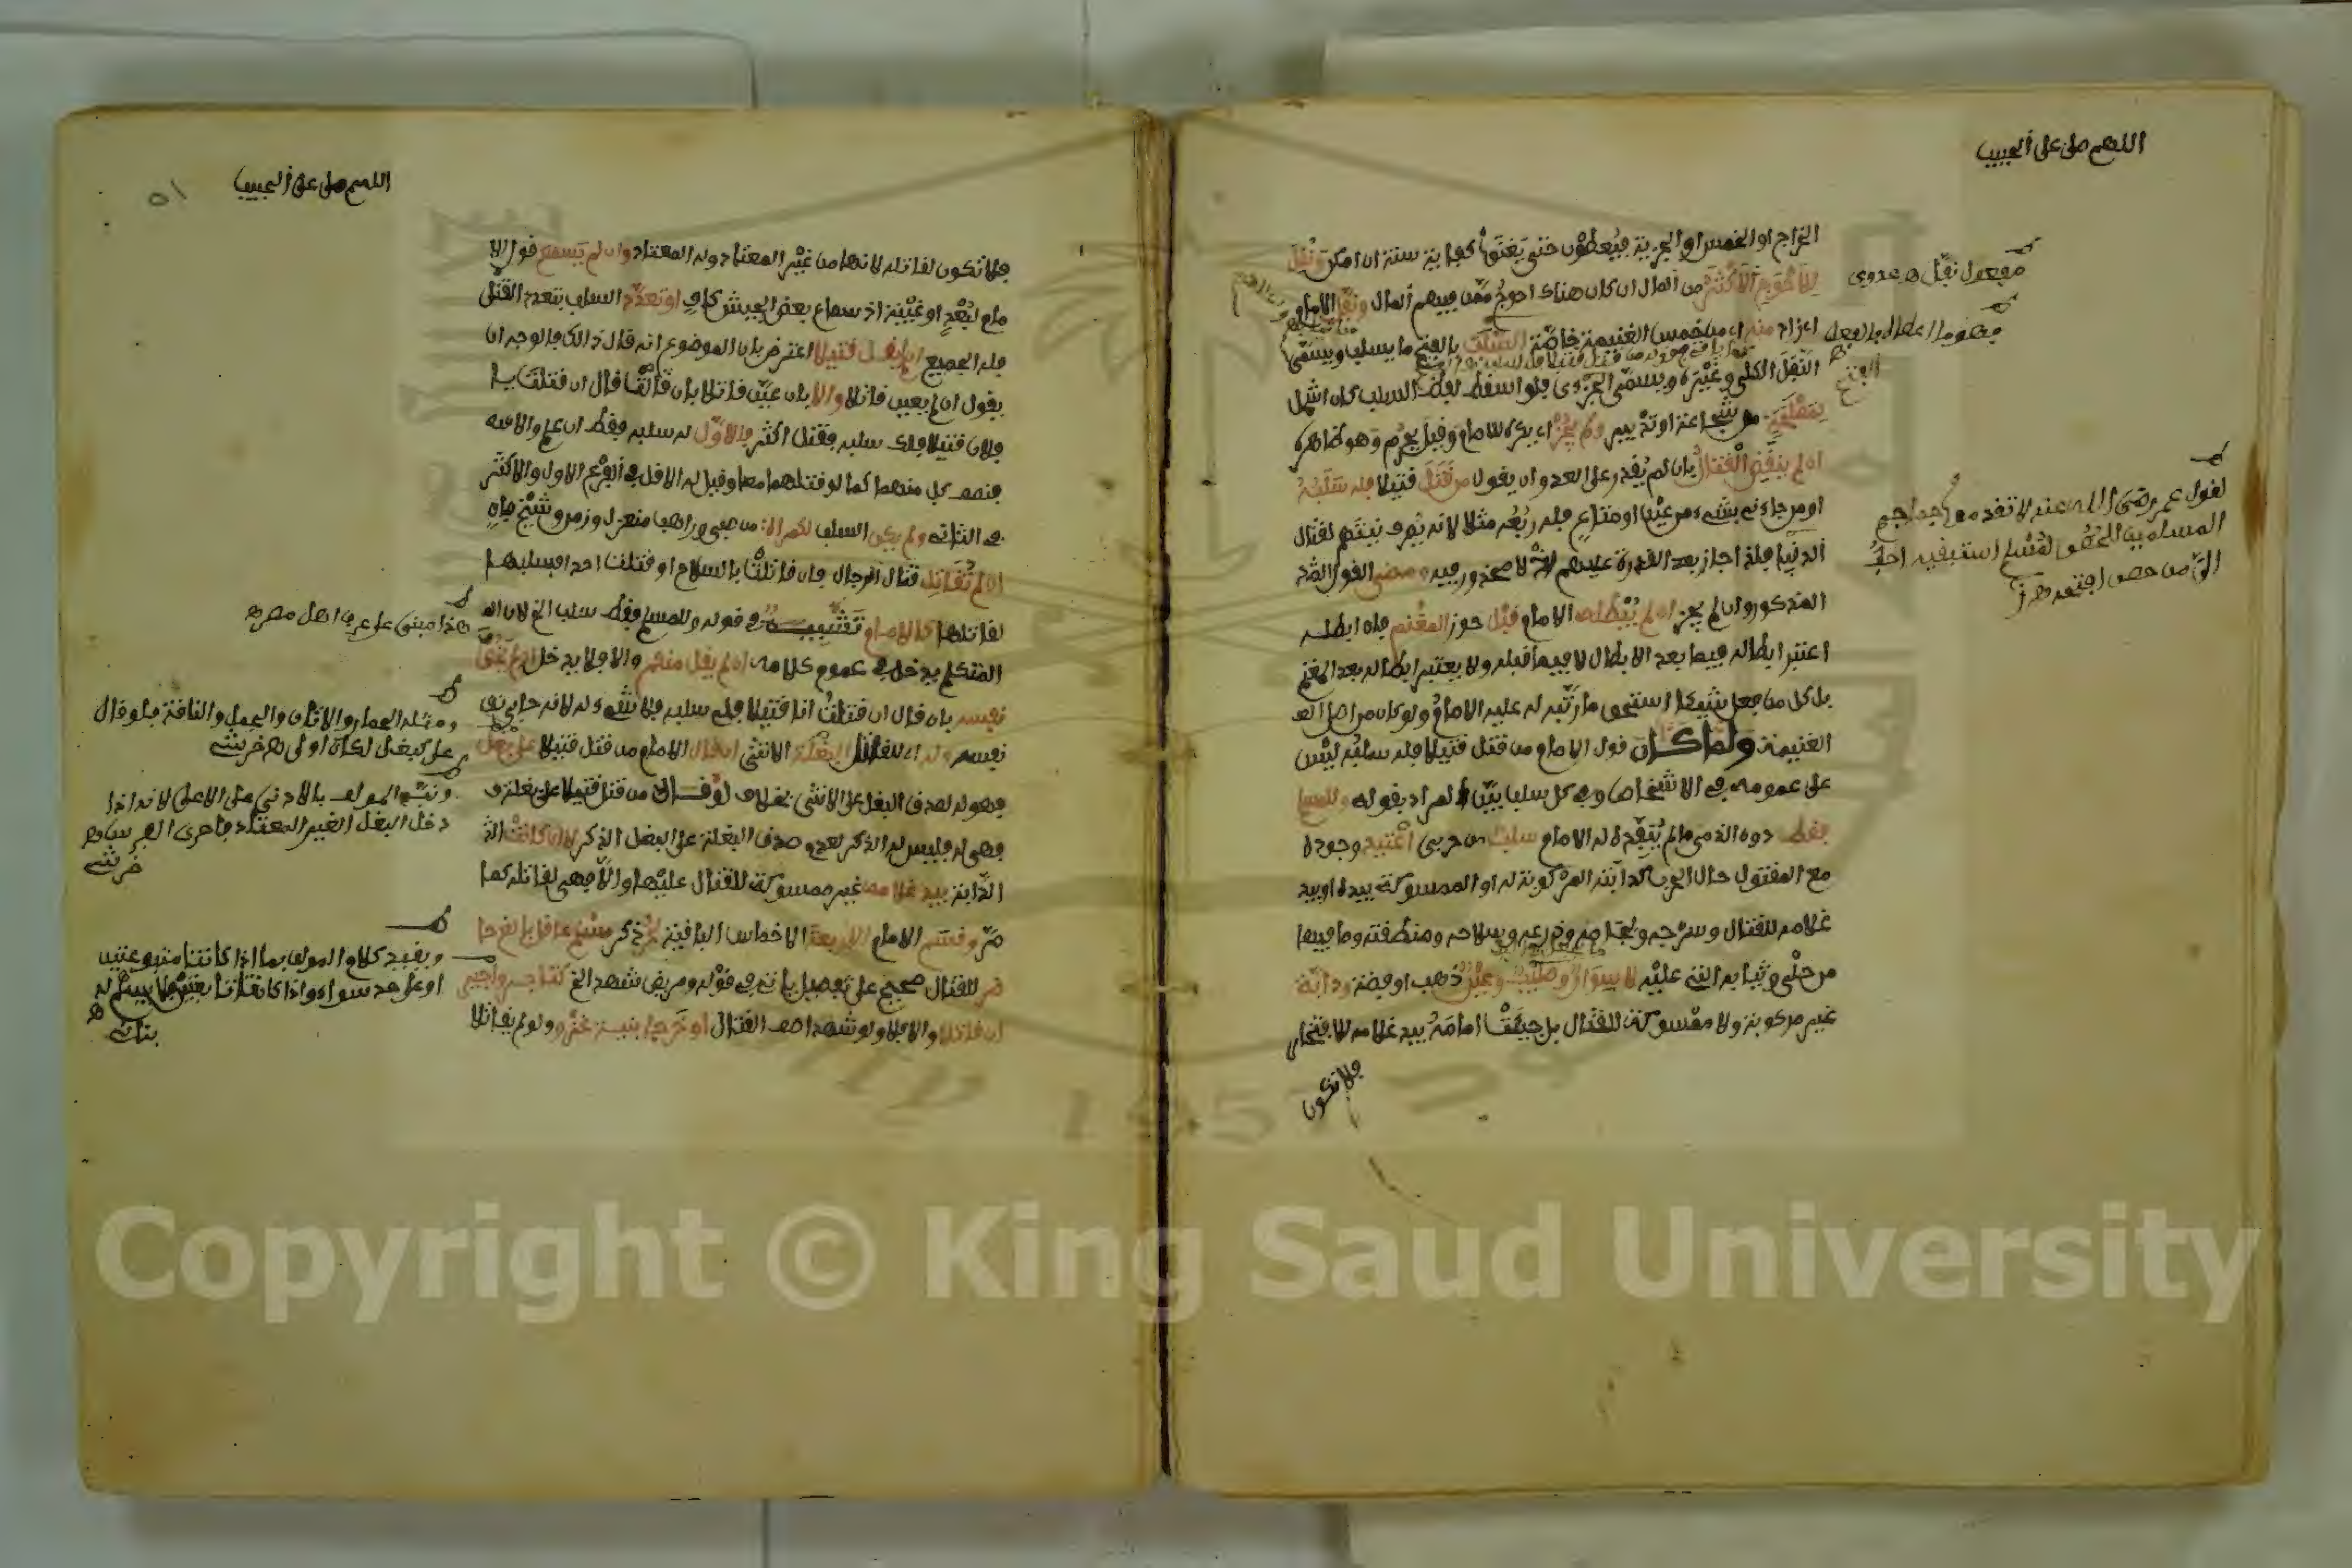 اللهم صل على الحبيب
الخراج او الخمس او الجزية فيعطون حتى يغنوا كفاية سنة ان امكن ونقل
للاحوج الاكثر من المال ان كان هناك احوج ممن فيهم المال ونفل الامام
اي زاد منه اي من خمس الغنيمة خاصة السلب بالفتح ما يسلب ويسمى
النفل الكلي وغيره ويسمى الجزءي فلو اسقط لفظ السلب كان اشمل
لمصلحة من شجاعة او تدبير ولم يجز اي يكره للامام وقيل يحرم وهو ظاهره
ان لم ينقض القتال بان لم يقدر على العدو ان يقول من قتل قتيلا فله سلبه
او من جاءني بشيء من عين او متاع فله ربعه مثلا لانه يصرف نيتهم لقتال
الدنيا فلذا جاز بعد القدرة عليهم اذ لا محذور فيه ومضى القول
المذكور وان لم يجز ان لم يبطله الامام قبل حوز المغنم فان ابطله
اعتبر ابطاله فيما بعد الابطال لا فيما قبله ولا يعتبر ابطاله بعد المغنم
بل كل من فعل شيئا استحق ما رتبه له عليه الامام ولو كان من اصل
الغنيمة ولما كان قول الامام من قتل قتيلا فله سلبه ليس
على عمومه في الاشخاص وفي كل سلب بين المراد بقوله وللمسلم
فقط دون الذمي ما لم ينفذه له الامام سلب من حربي اعتيد وجوده
مع المقتول حال الحرب كدابته المركوبة له او الممسوكة بيده او بيد
غلامه للقتال وسرجه ولجامه ودرعه وسلاحه ومنطقته وما فيها
من حلي وثيابه التي عليه لا سوار وصليب وعين ذهب او فضة ودابة
غير مركوبة ولا ممسوكة للقتال بل جيئت امامه بيد غلامه للافتخار
فلا تكون
مفعول نفل هـ عدوي
لقول عمر رضي الله عنه لا تقدموا جماجم
المسلمين للحصون لمسلم استبقيه احب
الي من حصن افتحه هـ ز
اللهم صل على الحبيب
٥١
فلا تكون لقاتله لانها من غير المعتاد وله المعتاد وان لم يسمع قول الا
مام لبعد او غيبة اذ سماع بعض الجيش كاف او تعدد السلب بتعدد القتلى
فله الجميع ان لم يقل قتيلا اعترض بان الموضوع انه قال ذالك فالوجه ان
يقول ان لم يعين قاتلا والا بان عين قاتلا بان قال ان قتلت يا
فلان قتيلا فلك سلبه فقتل اكثر فالاول له سلبه فقط ان علم والا فله
نصف كل منهما كما لو قتلهما معا وقيل له الاقل في الفرع الاول والاكثر
في الثاني ولم يكن السلب لكمراة من صبي وراهب منعزل وزمن وشيخ فان
ان لم تقاتل قتال الرجال فان قاتلت بالسلاح او قتلت احدا فسلبها
لقاتلها كالامام تشبيه في قوله وللمسلم فقط سلب الخ لان
المتكلم يدخل في عموم كلامه ان لم يقل منكم والا فلا يدخل او لم يخص
نفسه بان قال ان قتلت انا قتيلا فلي سلبه فلا شيء له لانه حابى
نفسه وله اي للقاتل البغلة الانثى ان قال الامام من قتل قتيلا على بغل
فهو له لصدق البغل على الانثى بخلاف لو قال من قتل قتيلا على بغلة
فهي له فليس له الذكر لعدم صدق البغلة على البغل الذكر لا ان كانت
الدابة بيد غلامه غير ممسوكة للقتال عليها والا فهي لقاتله كما
مر وقسم الامام الاربعة الاخماس الباقية لذكر مسلم عاقل بالغ حا
ضر للقتال صحيح على تفصيل ياتي في قوله ومريض شهد الخ كتاجر واجير
ان قاتلا والا فلا ولو شهدا صف القتال او خرجا بنية غزو ولو لم يقاتلا
هذا مبني على عرف اهل مصر هـ
ومثله الحمار والاتان والجمل والناقة فلو قال
على كبغل لكان اولى هـ خرشي
ونبه المولف بالادنى على الاعلى لانه اذا
دخل البغل الغير المعتاد فاحرى الفرس هـ
خرشي
ويقيد كلام المولف بما اذا كانتا متبوعتين
او على حد سواء واذا كانتا تابعتين فلا يسهم له هـ
بناني